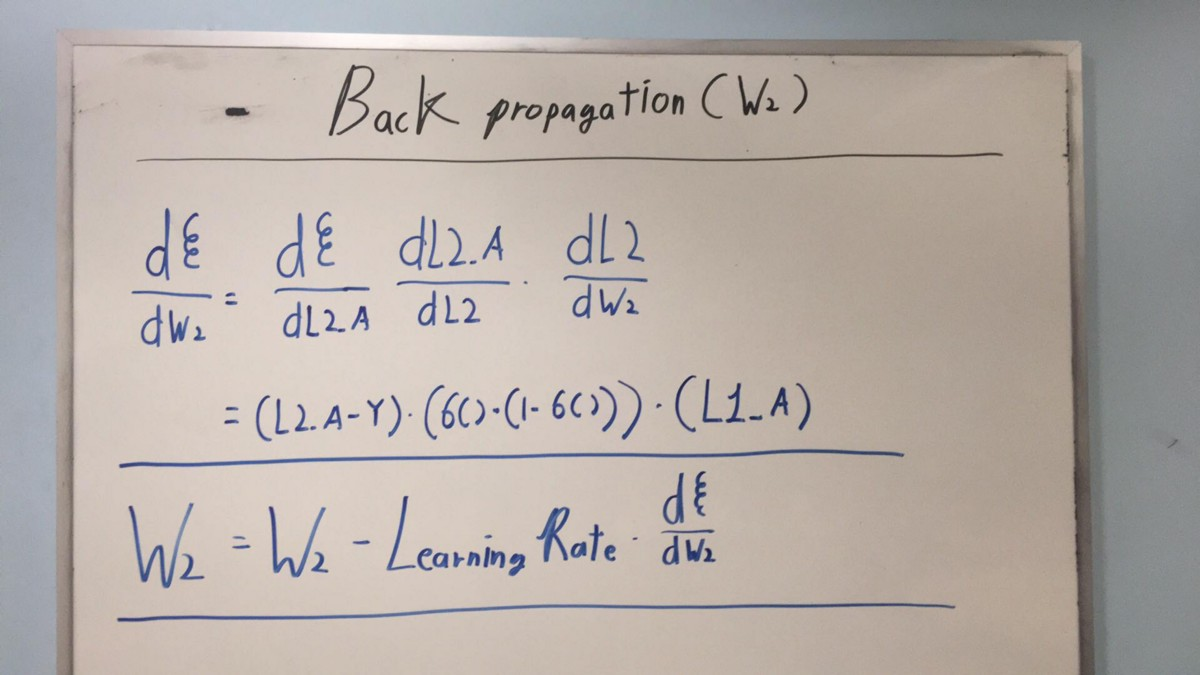 Back propagation (W2)
dξ/dW2 = dξ/dL2_A dL2_A/dL2 · dL2/dW2
= (L2_A-Y)·(6()·(1-6()))·(L1_A)
W2 = W2 - Learning Rate · dξ/dW2